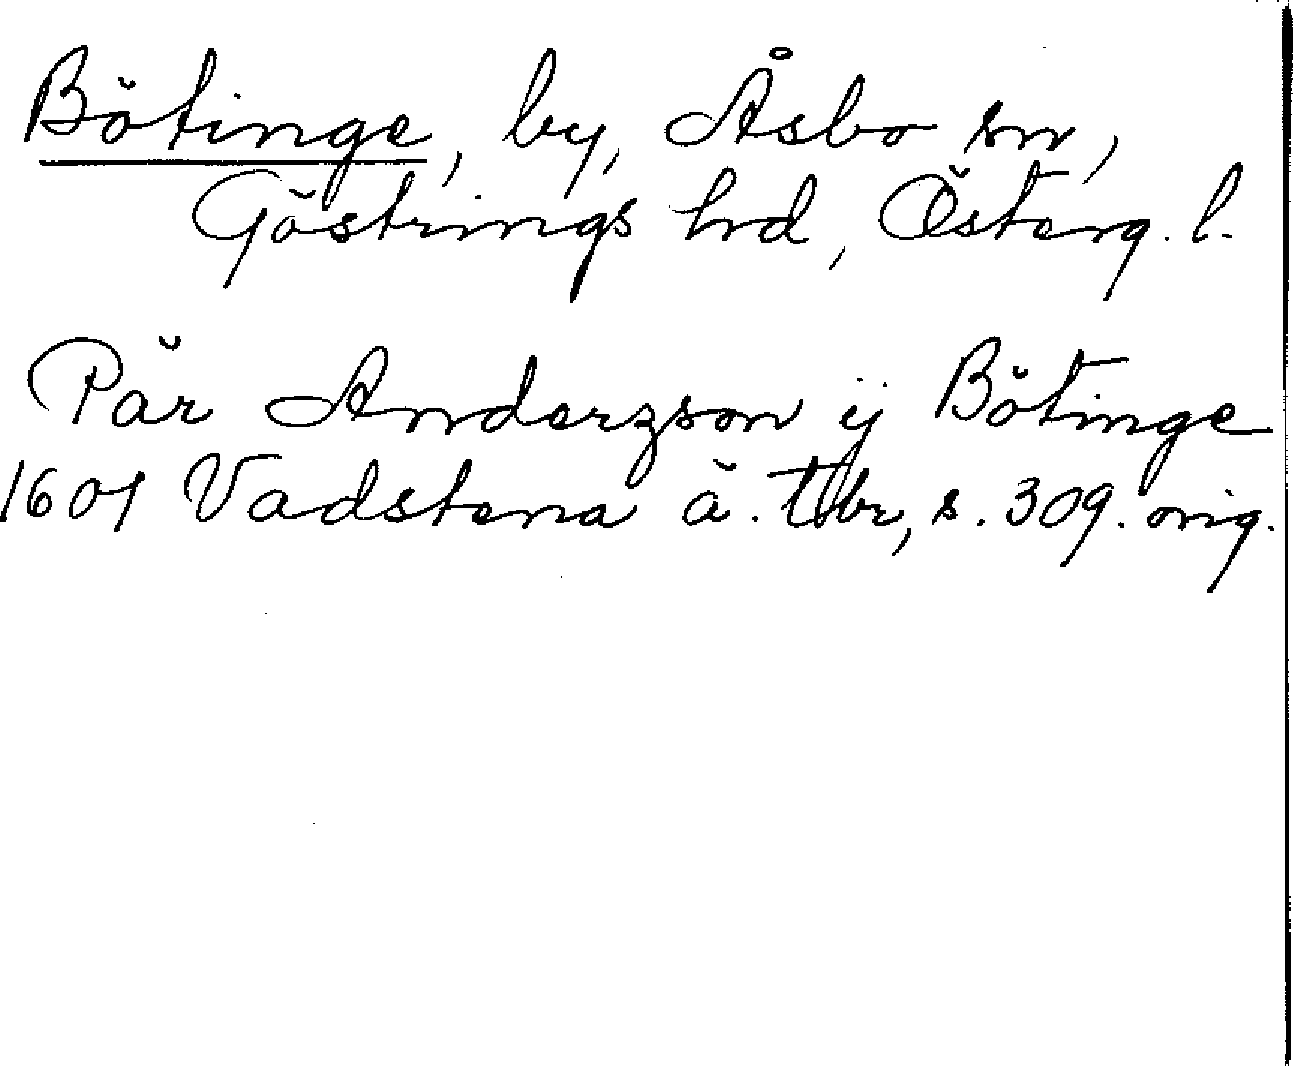 Bötinge, by, Åsbo sn,
Göstrings hrd, Österg. l.
Pär Anderzson ij Bötinge
1601 Vadstena ä. tbr, s. 309. orig.